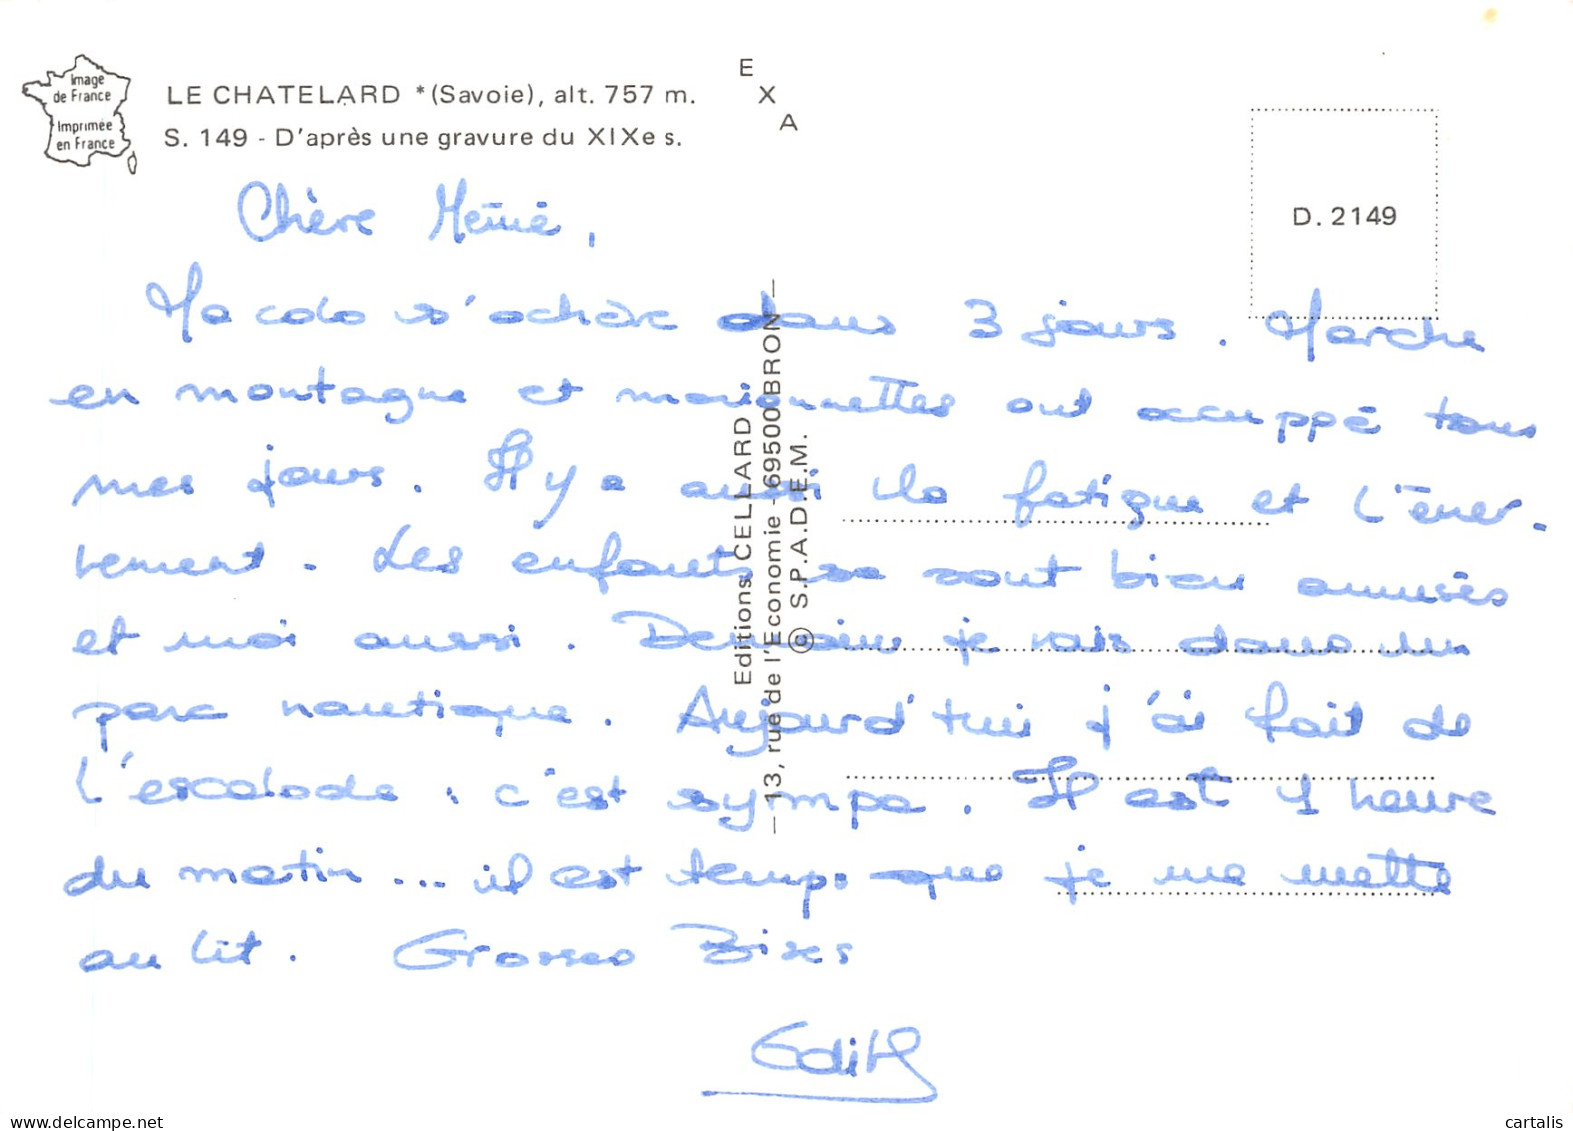 Image
de France
Imprimée
en France
LE CHATELARD * (Savoie), alt. 757 m.
S. 149 - D'après une gravure du XIXe s.
E
X
A
D. 2149
Chère Mémé,
Ma colo s'achève dans 3 jours. Marche
en montagne et marionnettes ont occuppé tous
mes jours. Il y a aussi la fatigue et l'éner-
vement. Les enfants se sont bien amusés
et moi aussi. Demain je vais dans un
parc nautique. Aujourd'hui j'ai fait de
l'escalade, c'est sympa. Il est 1 heure
du matin... il est temps que je me mette
au lit. Grosses Bises
Edith
Editions CELLARD
— 13, rue de l'Economie - 69500 BRON —
© S.P.A.D.E.M.
delcampe.net
cartalis